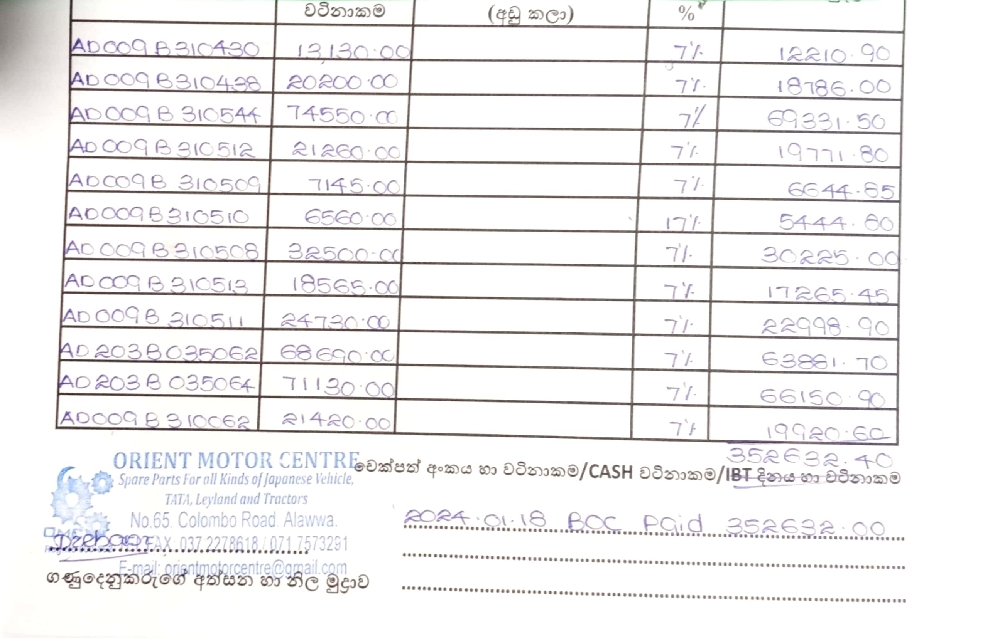 වටිනාකම (අඩු කලා) %
AD009B310430 13,130.00 7% 12210.90
AD009B310438 20200.00 7% 18786.00
AD009B310544 74550.00 7% 69331.50
AD009B310512 21260.00 7% 19771.80
AD009B310509 7145.00 7% 6644.85
AD009B310510 6560.00 17% 5444.80
AD009B310508 32500.00 7% 30225.00
AD009B310513 18565.00 7% 17265.45
AD009B310511 24730.00 7% 22998.90
AD203B035062 68690.00 7% 63881.70
AD203B035064 71130.00 7% 66150.90
AD009B310062 21420.00 7% 19920.60
352632.40
ORIENT MOTOR CENTRE
Spare Parts For all Kinds of Japanese Vehicle,
TATA, Leyland and Tractors
No.65. Colombo Road. Alawwa.
FAX 037 2278618 / 071 7573291
E-mail: orientmotorcentre@gmail.com
ගණුදෙනුකරුගේ අත්සන හා නිල මුද්‍රාව
චෙක්පත් අංකය හා වටිනාකම/CASH වටිනාකම/IBT දිනය හා වටිනාකම
2024.01.18 BOC Paid 352632.00